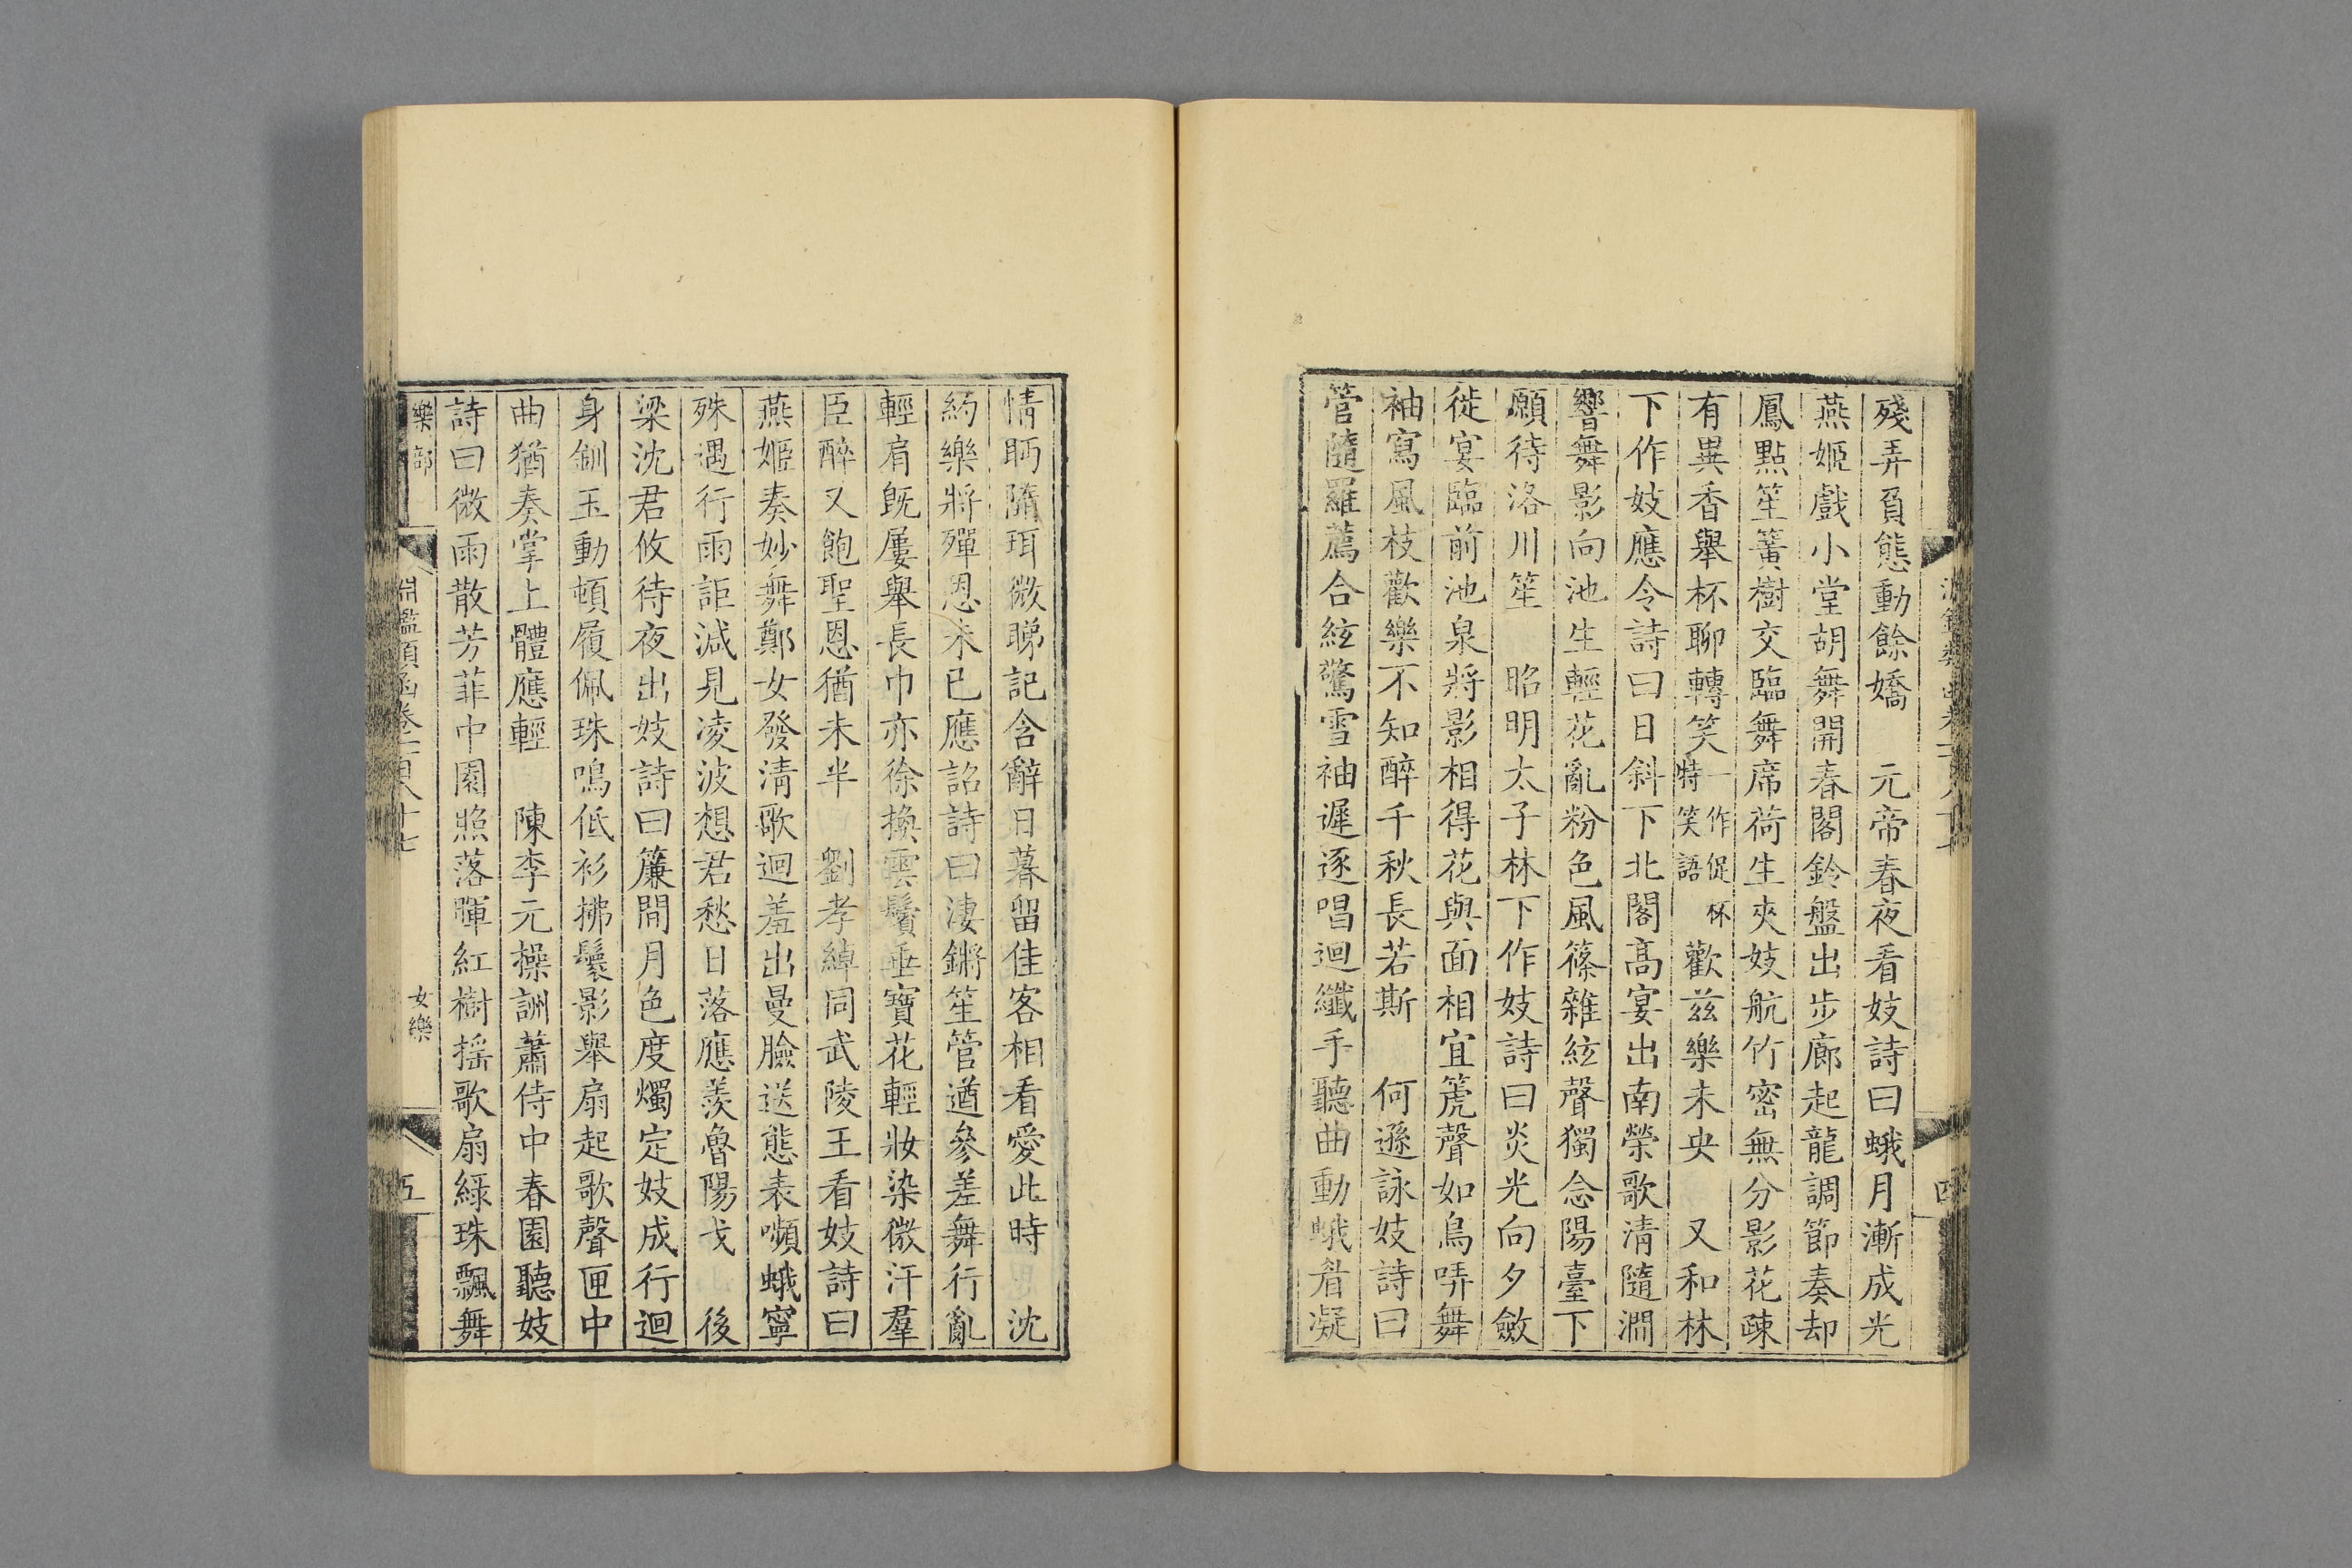 殘弄負態動餘嬌　元帝春夜看妓詩曰蛾月漸成光
燕姬戲小堂胡舞開春閣鈴盤出步廊起龍調節奏却
鳳點笙簧樹交臨舞席荷生夾妓航竹密無分影花疎
有異香舉杯聊轉笑一作促杯特笑語歡兹樂未央　又和林
下作妓應令詩曰日斜下北閣高宴出南榮歌清隨澗
響舞影向池生輕花亂粉色風篠雜絃聲獨念陽臺下
願待洛川笙　昭明太子林下作妓詩曰炎光向夕斂
徙宴臨前池泉將影相得花與面相宜篪聲如鳥哢舞
袖寫風枝歡樂不知醉千秋長若斯　何遜詠妓詩曰
管隨羅薦合絃驚雪袖遲逐唱迴纖手聽曲動蛾眉凝
四
情眄隋珥微睇記含辭日暮留佳客相看愛此時　沈
約樂將殫恩未已應詔詩曰淒鏘笙管遒參差舞行亂
輕肩既屢舉長巾亦徐換雲鬢垂寶花輕妝染微汗羣
臣醉又飽聖恩猶未半　劉孝綽同武陵王看妓詩曰
燕姬奏妙舞鄭女發清歌迴羞出曼臉送態表嚬蛾寧
殊遇行雨詎減見凌波想君愁日落應羨魯陽戈　後
梁沈君攸待夜出妓詩曰簾間月色度燭定妓成行迴
身釧玉動頓履佩珠鳴低衫拂鬟影舉扇起歌聲匣中
曲猶奏掌上體應輕　陳李元操詶蕭侍中春園聽妓
詩曰微雨散芳菲中園照落暉紅樹搖歌扇綠珠飄舞
樂部　淵鑑類函卷一百八十七　女樂　五